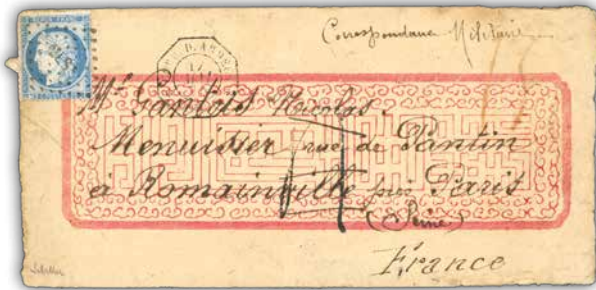 Correspondance Militaire
Mr Gantois Nicolas
Menuisier rue de Pantin
à Romainville près Paris
(Seine)
France